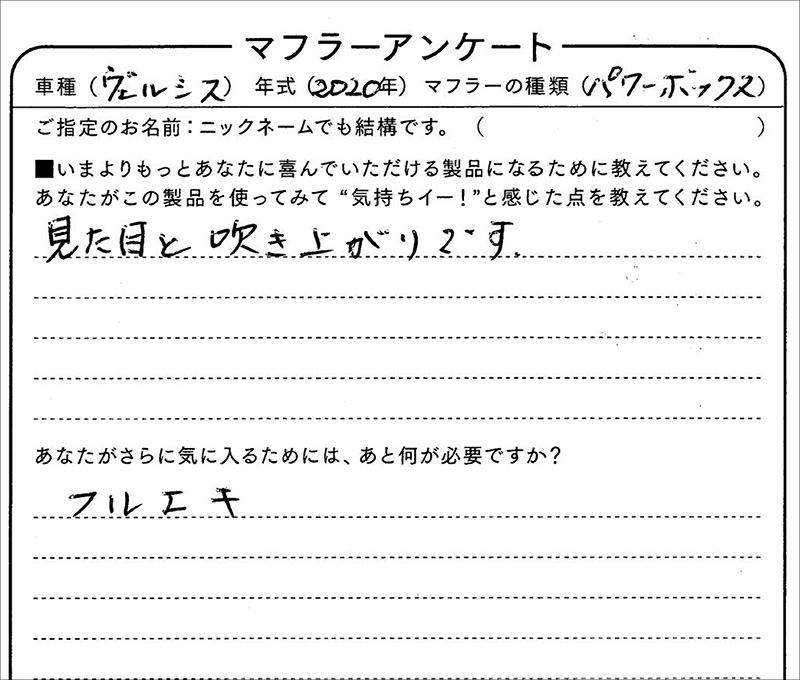 マフラーアンケート
車種（ヴェルシス） 年式（2020年） マフラーの種類（パワーボックス）
ご指定のお名前：ニックネームでも結構です。（　　　）
■いまよりもっとあなたに喜んでいただける製品になるために教えてください。
あなたがこの製品を使ってみて“気持ちイー！”と感じた点を教えてください。
見た目と吹き上がりです.
あなたがさらに気に入るためには、あと何が必要ですか？
フルエキ